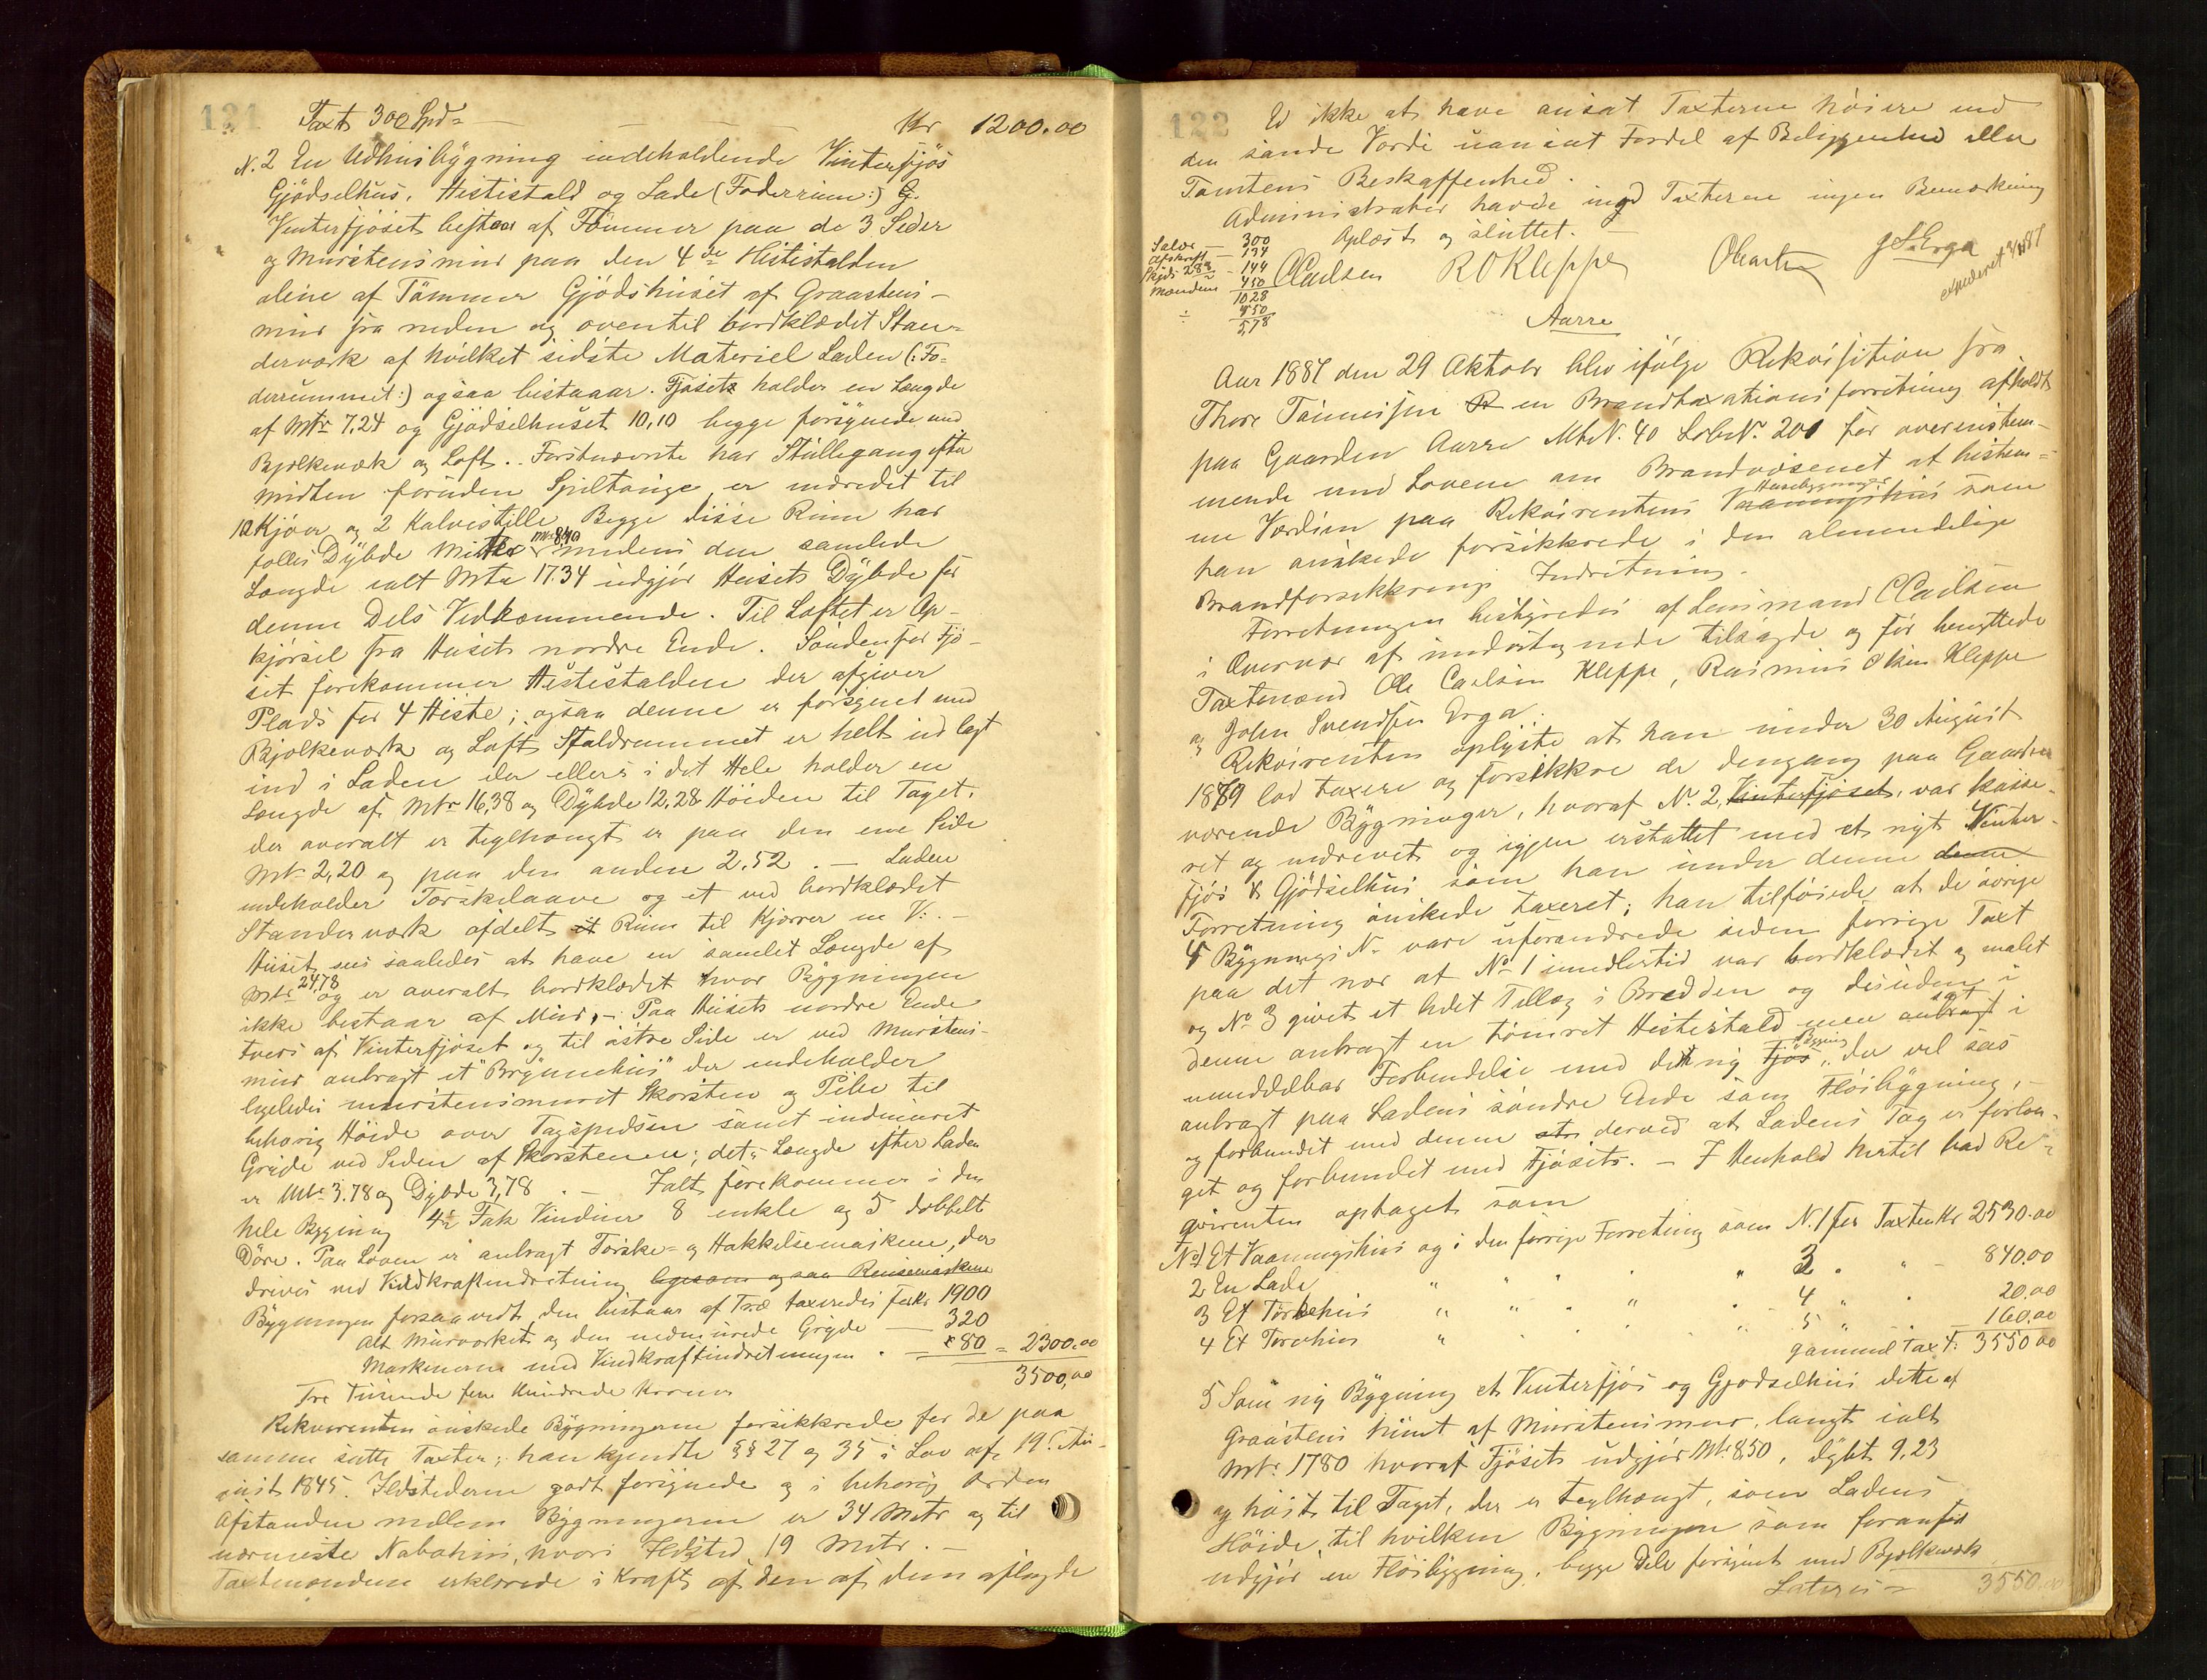 121
Taxt 300 Spd = — — — Kr 1200.00
N. 2 En Udhusbygning indeholdende Vinterfjös
Gjödselhus, Hestestald og Lade (Foderrum:) G.
Vinterfjöset bestaar af Tömmer paa de 3 Sider
og Murstensmur paa den 4de Hestestalden
alene af Tömmer Gjödshuset af Graastens-
mur fra neden og oventil bordklædt Stan-
derværk af hvilket sidste Materiel Laden (: Fo-
derrummet:) ogsaa bestaaar. Fjöset holder en Længde
af Mtr 7,24 og Gjödselhuset 10,10 begge forsynede med
Bjelkeværk og Loft.. Förstnævnte har Stillegang efter
Midten foruden Spiltouge er indredet til
12 Kjöer og 2 Kalvestille Begge disse Rum har
fælles Dybde Mtr 8,40 medens den samlede
Længde ialt Mtr 17.34 udgjör Husets Dybde for
denne Dels Vedkommende. Til Loftet er Op-
kjörsel fra Husets nordre Ende. Söndenfor Fjö-
set forekommer Hestestalden der afgiver
Plads for 4 Heste; ogsaa denne er forsynet med
Bjælkeværk og Loft Staldrummet er helt ind lagt
ind i Laden der ellers i det Hele holder en
Længde af Mtr 16,38 og Dybde 12,28 Höiden til Taget,
der overalt er teglhængt er paa den ene Side
Mtr 2,20 og paa den anden 2.52. — Laden
indeholder Torskelaave og et ved bordklædet
Standerværk afdelt et Rum til Kjærrer m V:. —
Huset sees saaledes at have en samlet Længde af
Mtr 24,78 og er overalt bordklædt hvor Bygningen
ikke bestaar af Mur. — Paa Husets nordre Ende
tvers af Vinterfjöset og til östre Side er ved Murstens-
mur anbragt et "Bryggehus" der indeholder
ligeledes murstensmuret Skorsten og Pibe til
behörig Höide over Tagspidsen samt indmuret
Gryde ved Siden af Skorstenen; dets Længde efter Laden
er Mtr 3.78 og Dybde 3,78. — Ialt forekommer i den
hele Bygning 4½ Fak Vinduer 8 enkle og 5 dobbelt
Döre. Paa Loven er anbragt Torske- og Hakkelsemaskine, der
drives ved Vindkraftindretning ligesom ogsaa Rensemaskine
Bygningen forsaavidt den bestaar af Træ taxeredes for Kr 1900
Alt Murværket og den nedmurede Gryde — 320
Maskinerne med Vindkraftindretningen. — 80 = 2300.00
3500,00
Tre Tusende fem Hundrede Kroner
Rekvirenten önskede Bygningerne forsikkrede for de paa
samme satte Taxter; han kjendte §§ 27 og 35 i Lov af 19 Au-
gust 1845. Ildstederne godt forsynede og i behörig Orden
Afstanden mellem Bygningerne er 34 Mtr og til
nærmeste Nabohus, hvori Ildsted 19 Mtr. —
Taxtmændene erklærede i Kraft af den af dem aflagde
122
Ed ikke at have ansat Taxterne höiere end
den sande Værdi uanset Fordel af Beliggenhed eller
Tomtens Beskaffenhed.
Administrator havde mod Taxterne ingen Bemærkning
Oplæst og sluttet.
Salær — 300
Afskrift — 134
Skyds 28 — 144
Mændene 450
1028
450
5,78
CCarlsen ROKleppe OCarlsen JSErga
expederet
Aarre
Aar 1887 den 29 Oktober blev ifölge Rekvisition fra
Thore Tönnesen R en Brandtaxationsforretning afholdt
paa Gaarden Aarre MtrN. 40 LöbeN. 201 for overenstem-
mende med Lovene om Brandvæsenet at bestem-
me Værdien paa Rekvirentens Vaaningshus Husebygninger som
han önskede forsikkrede i den almindelige
Brandforsikkrings Indretning.
Forretningen bestyredes af Lensmand CCarlsen
i Overvær af undertegnede tilsagde og för benyttede
Taxtmænd Ole Carlsen Kleppe, Rasmus Olsen Kleppe
og John Svendsen Erga.
Rekvirenten oplyste at han under 30 August
1879 lod taxere og forsikkre de dengang paa Gaarden
værende Bygninger, hvoraf No. 2, Vinterfjöset, var kasse-
ret og nedrevet og igjen erstattet med et nyt Vinter-
fjös & Gjödselhus som han under denne denne
Forretning önskede taxeret; han tilföiede at de övrige
4 Bygnings N. vare uforandrede siden forrige Taxt
paa det nær at No 1 imidlertid var bordklædet og malet
og No 3 givet et lidet Tillæg i Bredden og desuden i
denne anbragt en tömret Hestestald men anbragt sat i
umiddelbar Forbindelse med den ny Fjös Bygning, der vel sees
anbragt paa Ladens söndre Ende som Flöibygning,
og forbundet med denne ste derved at Ladens Tag er forlæn-
get og forbundet med Fjösets. — I Henhold hertil bad Re-
qvirenten optaget som
No 1 Et Vaaningshus og i den forrige Forretning som N. 1 for Taxten Kr 2530.00
2 En Lade " " " " " 3 " " — 840.00
3 Et Törkehus " " " " " 4 " " 20.00
4 Et Torvhus " " " " " 5 " " — 160.00
gammel Taxt: 3550.00
5 Som ny Bygning et Vinterfjös og Gjödselhus dette af
Graastens hint af Murstensmur, langt ialt
Mtr. 1780 hvoraf Fjöset udgjör Mtr 8,50, dybt 9,23
og höit til Taget, der er teglhængt, som Ladens
Höide til hvilken Bygningen som foranfört
udgjör en Flöibygning, begge Dele forsynet med Bjelkeværk
Lateris = 3550.00